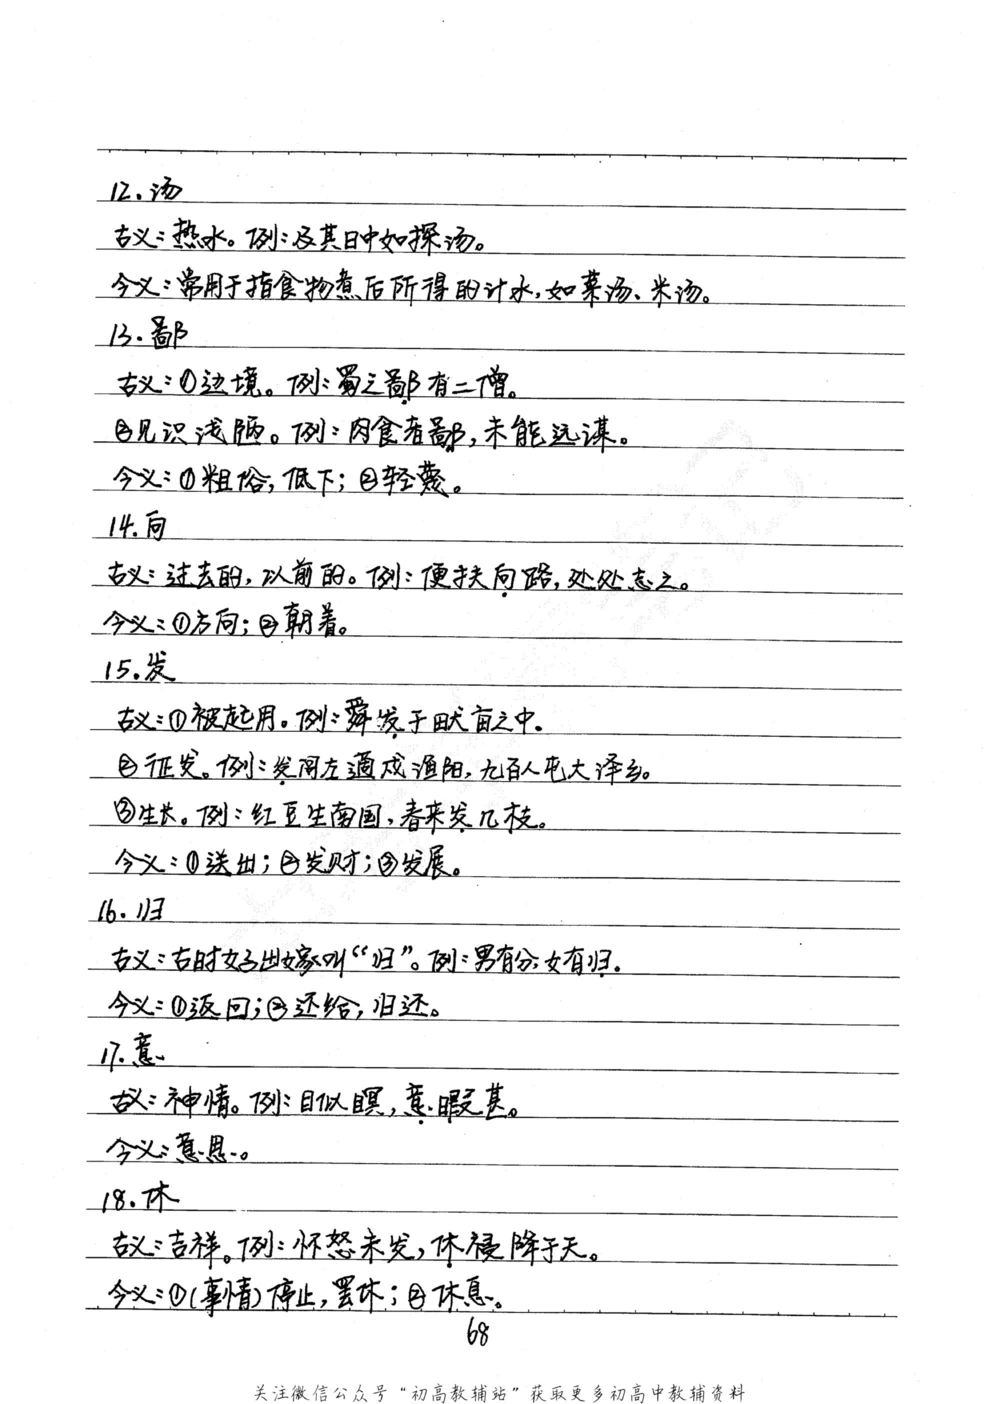 12.汤
古义：热水。例：及其日中如探汤。
今义：常用于指食物煮后所得的汁水，如菜汤、米汤。
13.鄙
古义：①边境。例：蜀之鄙有二僧。
②见识浅陋。例：肉食者鄙，未能远谋。
今义：①粗俗，低下；②轻蔑。
14.向
古义：过去的，以前的。例：便扶向路，处处志之。
今义：①方向；②朝着。
15.发
古义：①被起用。例：舜发于畎亩之中。
②征发。例：发闾左適戍渔阳，九百人屯大泽乡。
③生长。例：红豆生南国，春来发几枝。
今义：①送出；②发财；③发展。
16.归
古义：古时女子出嫁叫“归”。例：男有分，女有归。
今义：①返回；②还给，归还。
17.意
古义：神情。例：目似瞑，意暇甚。
今义：意思。
18.休
古义：吉祥。例：怀怒未发，休祲降于天。
今义：①（事情）停止，罢休；②休息。
68
关注微信公众号“初高教辅站”获取更多初高中教辅资料